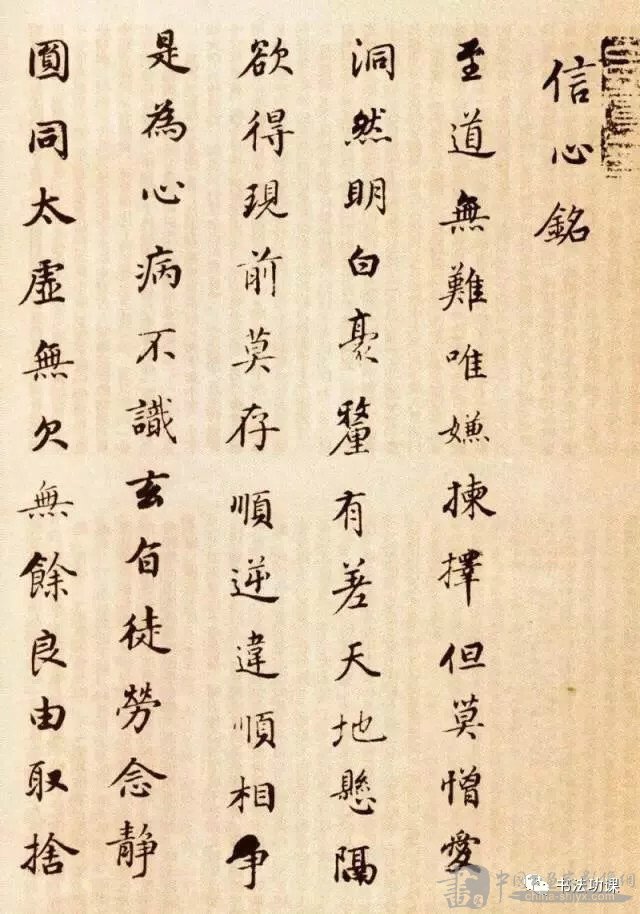 信心銘
至道無難唯嫌揀擇但莫憎愛
洞然明白豪釐有差天地懸隔
欲得現前莫存順逆違順相爭
是為心病不識玄旨徒勞念靜
圓同太虛無欠無餘良由取捨
书法功课
china-shjyx.com